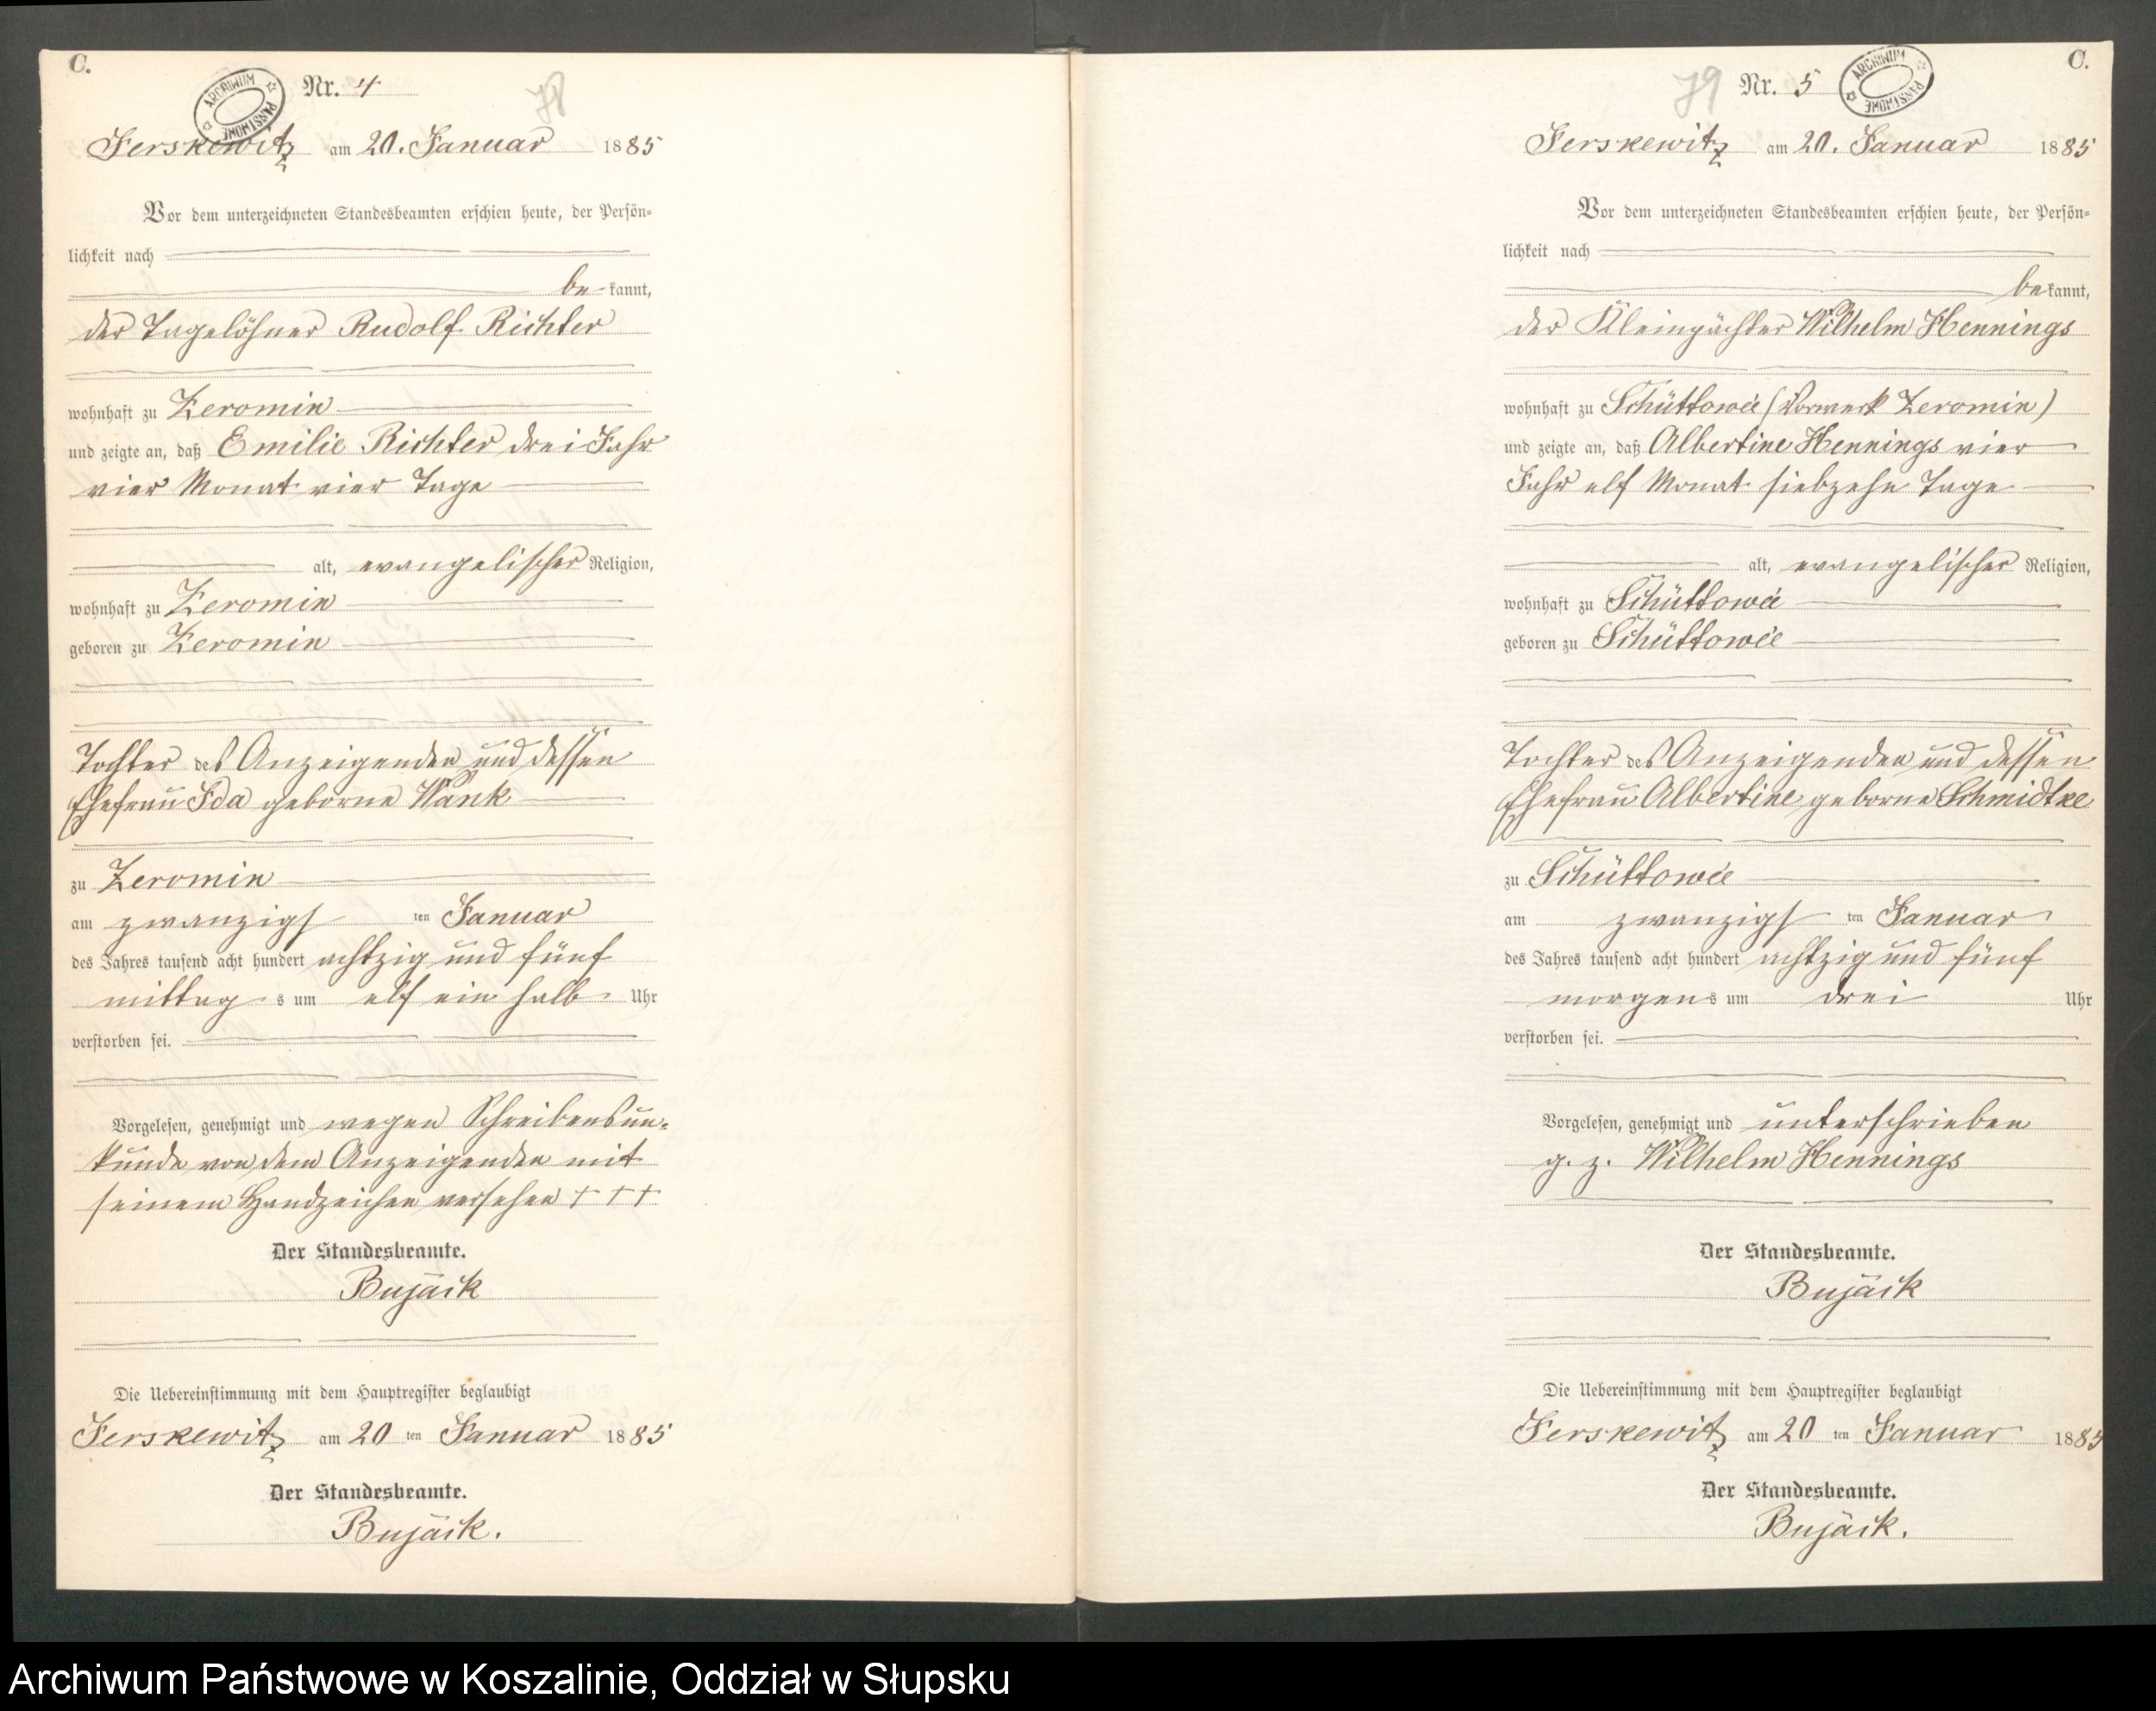 C.
ARCHIWUM PAŃSTWOWE
Nr. 4
78
Jerskewitz am 20. Januar 1885
Vor dem unterzeichneten Standesbeamten erschien heute, der Persön-
lichkeit nach
be kannt,
der Tagelöhner Rudolf Richter
wohnhaft zu Zeromin
und zeigte an, daß Emilie Richter drei Jahr
vier Monat vier Tage
alt, evangelischer Religion,
wohnhaft zu Zeromin
geboren zu Zeromin
Tochter des Anzeigenden und dessen
Ehefrau Ida geborne Wank
zu Zeromin
am zwanzigs ten Januar
des Jahres tausend acht hundert achtzig und fünf
mittag s um elf ein halb Uhr
verstorben sei.
Vorgelesen, genehmigt und wegen Schreibensun-
kunde von dem Anzeigenden mit
seinem Handzeichen versehen † † †
Der Standesbeamte.
Bujäck
Die Uebereinstimmung mit dem Hauptregister beglaubigt
Jerskewitz am 20 ten Januar 1885
Der Standesbeamte.
Bujäck.
C.
79
Nr. 5
ARCHIWUM PAŃSTWOWE
Jerskewitz am 20. Januar 1885
Vor dem unterzeichneten Standesbeamten erschien heute, der Persön-
lichkeit nach
bekannt,
der Kleinpächter Wilhelm Hennings
wohnhaft zu Schüttowie (Vorwerk Zeromin)
und zeigte an, daß Albertine Hennings vier
Jahr elf Monat siebzehn Tage
alt, evangelischer Religion,
wohnhaft zu Schüttowie
geboren zu Schüttowie
Tochter des Anzeigenden und dessen
Ehefrau Albertine geborne Schmidtke
zu Schüttowie
am zwanzigs ten Januar
des Jahres tausend acht hundert achtzig und fünf
morgen s um drei Uhr
verstorben sei.
Vorgelesen, genehmigt und unterschrieben
g. z. Wilhelm Hennings
Der Standesbeamte.
Bujäck
Die Uebereinstimmung mit dem Hauptregister beglaubigt
Jerskewitz am 20 ten Januar 1885
Der Standesbeamte.
Bujäck.
Archiwum Państwowe w Koszalinie, Oddział w Słupsku